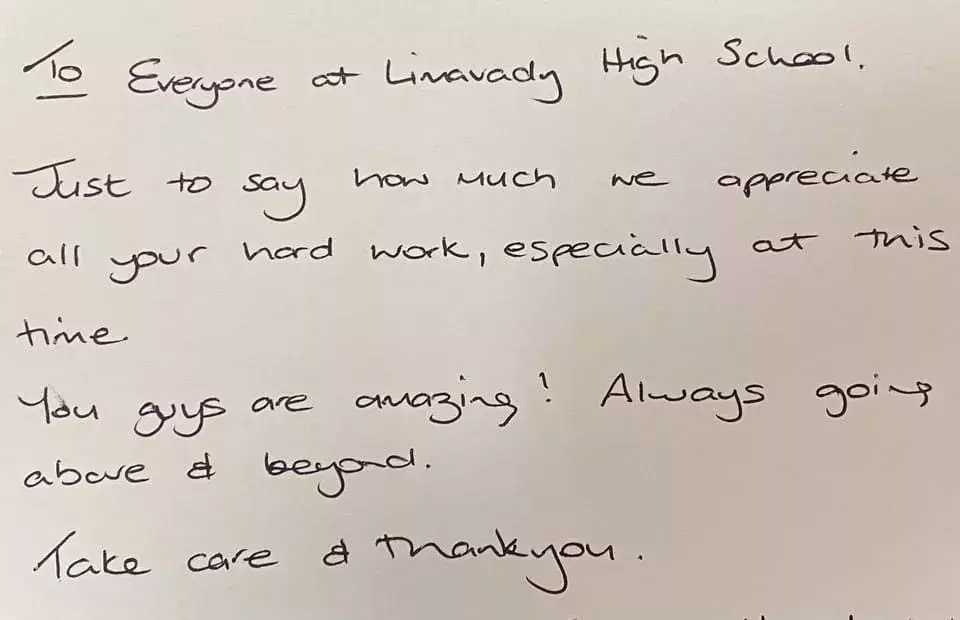 To Everyone at Limavady High School.
Just to say how much we appreciate
all your hard work, especially at this
time.
You guys are amazing! Always going
above & beyond.
Take care & thankyou.